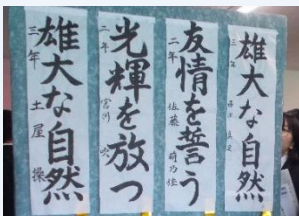 雄大な自然
三年
友情を誓う
二年 佐藤 萌乃佳
光輝を放つ
二年 宮川
雄大な自然
三年 土屋 操